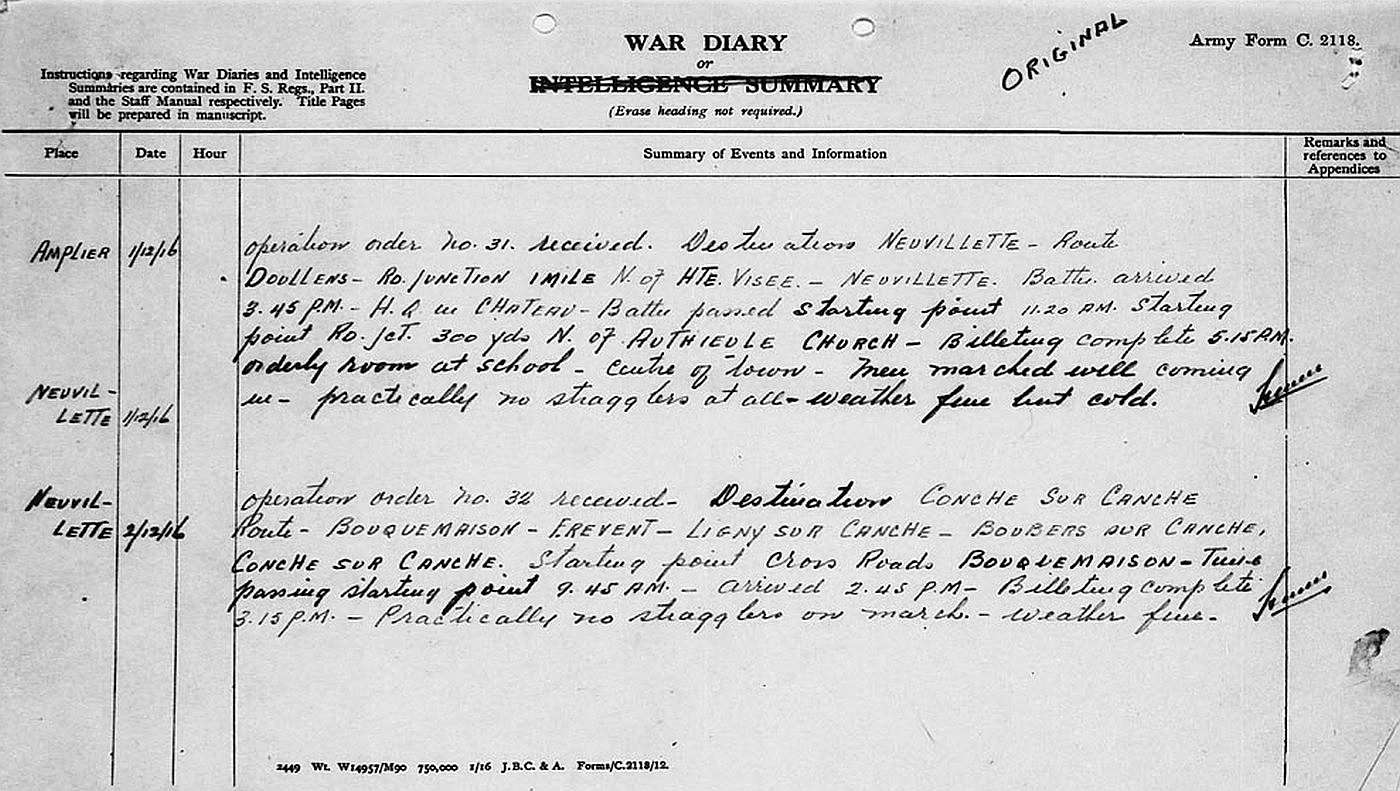 WAR DIARY
or
INTELLIGENCE SUMMARY
(Erase heading not required.)
ORIGINAL
Army Form C. 2118.
Instructions regarding War Diaries and Intelligence
Summaries are contained in F. S. Regs., Part II.
and the Staff Manual respectively. Title Pages
will be prepared in manuscript.
Place Date Hour Summary of Events and Information Remarks and
references to
Appendices
AMPLIER 1/12/16 Operation order No. 31. received. Destination NEUVILLETTE - Route
DOULLENS - RO. JUNCTION 1 MILE N. of HTE. VISEE. - NEUVILLETTE. Battn. arrived
3.45 P.M. - H.Q. in CHATEAU - Battn passed starting point 11.20 AM. Starting
point Ro. Jct. 300 yds N. of AUTHIEULE CHURCH - Billeting complete 5.15 P.M.
orderly room at school - centre of town - Men marched well coming
NEUVIL-
in - practically no stragglers at all - weather fine but cold.
LETTE 1/12/16
NEUVIL- Operation order No. 32 received - Destination CONCHE SUR CANCHE
LETTE 2/12/16 Route - BOUQUEMAISON - FREVENT - LIGNY SUR CANCHE - BOUBERS SUR CANCHE,
CONCHE SUR CANCHE. Starting point Cross Roads BOUQUEMAISON - Time
passing starting point 9.45 AM. - arrived 2.45 P.M - Billeting complete
3.15 P.M. - Practically no stragglers on march. - weather fine -
2449 Wt. W14957/M90 750,000 1/16 J.B.C. & A. Forms/C.2118/12.